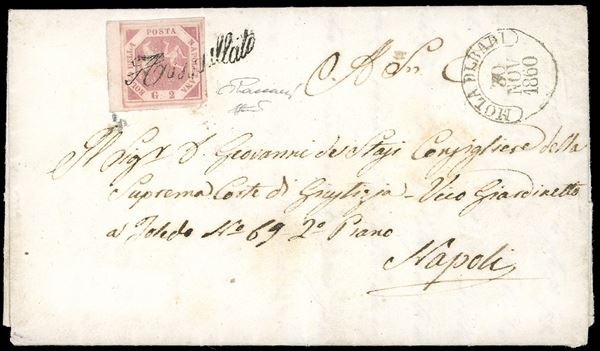 POSTA NAPOLETANA
G 2
Annullato
MOLA DI BARI
30 NOV 1860
A S
Sigr D. Giovanni de Stasj Consigliere della
Suprema Corte di Giustizia - Vico Giardinetto
a Toledo No 69 2o Piano
Napoli